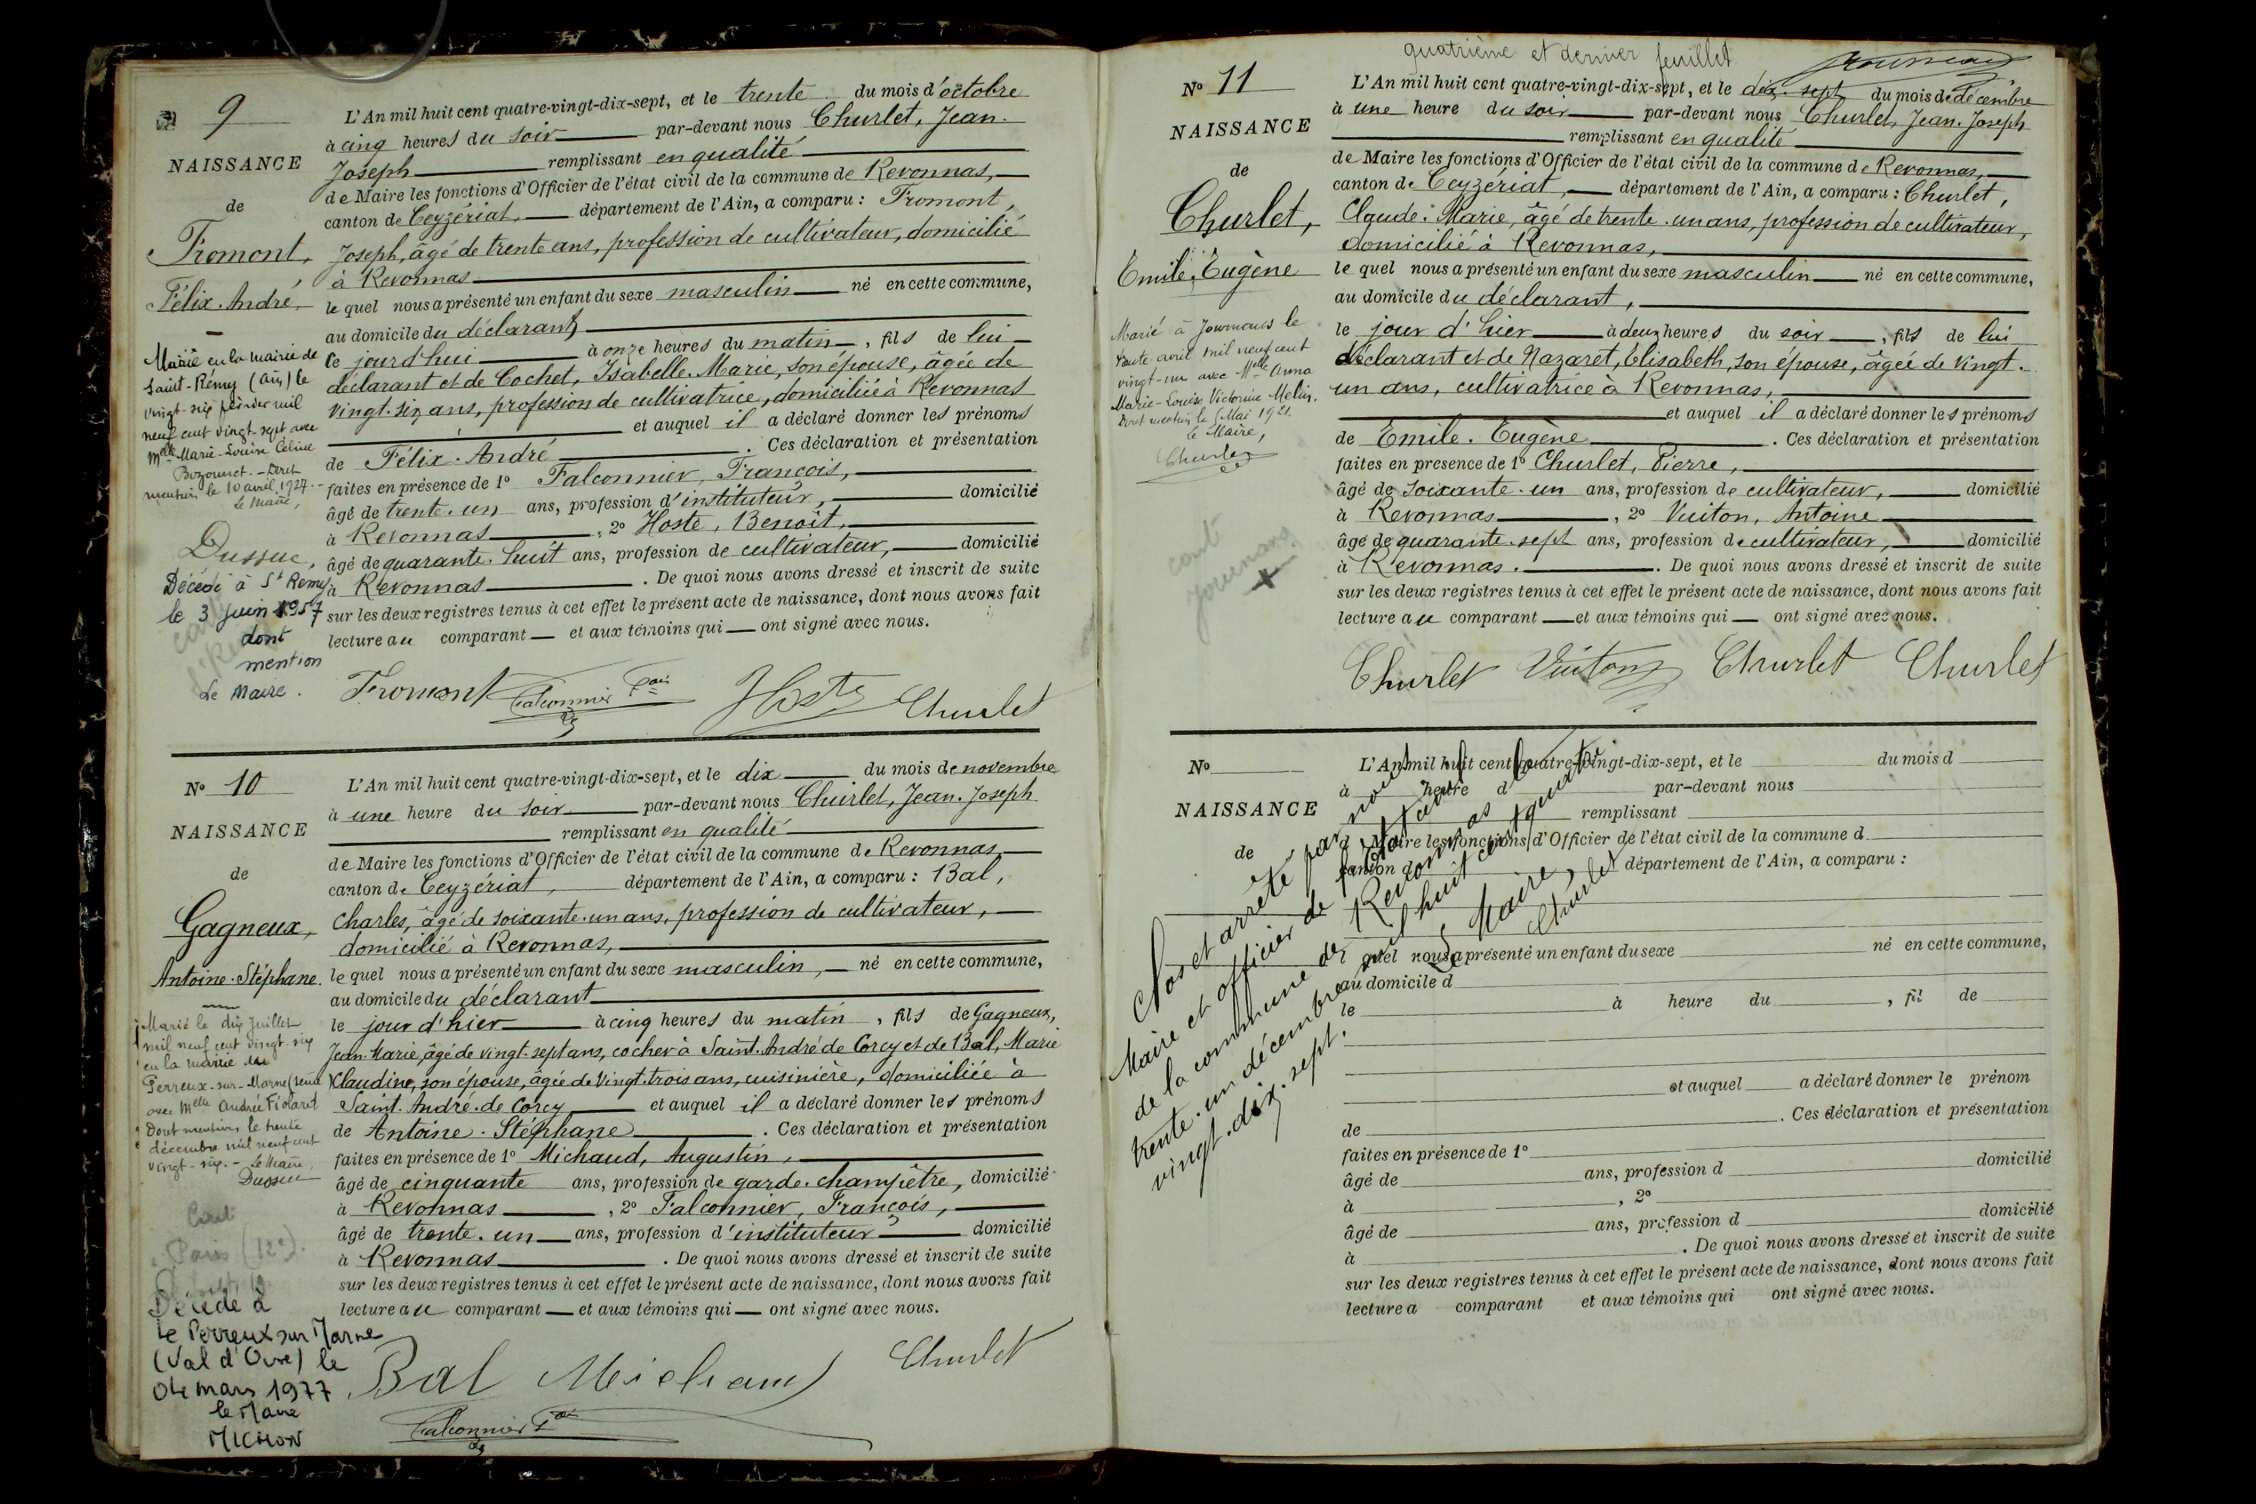 N° 9
NAISSANCE
de
Fromont,
Félix. André.
Marié en la mairie de
Saint-Rémy (Ain) le
vingt-six février mil
neuf cent vingt-sept avec
Melle Marie-Louise Céline
Dont
mention le 10 avril 1927.-
Le Maire,
Dussuc,
Décédé à St Remy
le 3 juin 1957
dont
mention
Le Maire.
L'An mil huit cent quatre-vingt-dix-sept, et le trente du mois d'octobre
à cinq heures du soir par-devant nous Churlet, Jean.
Joseph remplissant en qualité
de Maire les fonctions d'Officier de l'état civil de la commune de Revonnas,
canton de Ceyzériat, département de l'Ain, a comparu : Fromont,
Joseph, âgé de trente ans, profession de cultivateur, domicilié
à Revonnas
le quel nous a présenté un enfant du sexe masculin né en cette commune,
au domicile du déclarant,
le jourd'hui à onze heures du matin, fils de lui
déclarant et de Cochet, Isabelle. Marie, son épouse, âgée de
vingt. six ans, profession de cultivatrice, domiciliée à Revonnas
et auquel il a déclaré donner les prénoms
de Félix. André. Ces déclaration et présentation
faites en présence de 1° Falconnier, François,
âgé de trente. un ans, profession d'instituteur, domicilié
à Revonnas, 2° Hoste, Benoît,
âgé de quarante. huit ans, profession de cultivateur, domicilié
à Revonnas. De quoi nous avons dressé et inscrit de suite
sur les deux registres tenus à cet effet le présent acte de naissance, dont nous avons fait
lecture au comparant et aux témoins qui ont signé avec nous.
Fromont Falconnier Fçois Hoste Churlet
N° 10
NAISSANCE
de
Gagneux,
Antoine. Stéphane.
Marié le dix Juillet
mil neuf cent vingt-six
en la mairie du
Perreux-sur-Marne (Seine)
avec Melle Andrée
Dont mention, le trente
décembre mil neuf cent
vingt-six. - Le Maire,
Dussuc
Paris (12e).
Décédé à
Le Perreux sur Marne
(Val d'Oise) le
04 mars 1977
le Maire
MICHON
L'An mil huit cent quatre-vingt-dix-sept, et le dix du mois de novembre
à une heure du soir par-devant nous Churlet, Jean. Joseph
remplissant en qualité
de Maire les fonctions d'Officier de l'état civil de la commune de Revonnas,
canton de Ceyzériat, département de l'Ain, a comparu : Bal,
Charles, âgé de soixante. un ans, profession de cultivateur,
domicilié à Revonnas,
le quel nous a présenté un enfant du sexe masculin, né en cette commune,
au domicile du déclarant
le jour d'hier à cinq heures du matin, fils de Gagneux,
Jean. Marie, âgé de vingt. sept ans, cocher à Saint. André de Corcy et de Bal, Marie
Claudine, son épouse, âgée de vingt. trois ans, cuisinière, domiciliée à
Saint. André. de Corcy et auquel il a déclaré donner les prénoms
de Antoine. Stéphane. Ces déclaration et présentation
faites en présence de 1° Michaud, Augustin,
âgé de cinquante ans, profession de garde. champêtre, domicilié
à Revonnas, 2° Falconnier, François,
âgé de trente. un ans, profession d'instituteur domicilié
à Revonnas. De quoi nous avons dressé et inscrit de suite
sur les deux registres tenus à cet effet le présent acte de naissance, dont nous avons fait
lecture au comparant et aux témoins qui ont signé avec nous.
Bal Michaud Churlet
Falconnier Fçois
quatrième et dernier feuillet
N° 11
NAISSANCE
de
Churlet,
Emile. Eugène
Marié à Journans le
trente avril mil neuf cent
vingt-un avec Melle Anna
Marie-Louise Victorine
Dont mention, le Mai 1921.
Le Maire,
Churlet
Journans
L'An mil huit cent quatre-vingt-dix-sept, et le dix. sept du mois de décembre
à une heure du soir par-devant nous Churlet, Jean. Joseph
remplissant en qualité
de Maire les fonctions d'Officier de l'état civil de la commune de Revonnas,
canton de Ceyzériat, département de l'Ain, a comparu : Churlet,
Claude. Marie, âgé de trente. un ans, profession de cultivateur,
domicilié à Revonnas,
le quel nous a présenté un enfant du sexe masculin né en cette commune,
au domicile du déclarant,
le jour d'hier à deux heures du soir, fils de lui
déclarant et de Nazaret, Elisabeth, son épouse, âgée de vingt.
un ans, cultivatrice à Revonnas,
et auquel il a déclaré donner les prénoms
de Emile. Eugène. Ces déclaration et présentation
faites en presence de 1° Churlet, Pierre,
âgé de soixante. un ans, profession de cultivateur, domicilié
à Revonnas, 2° Vuiton, Antoine
âgé de quarante. sept ans, profession de cultivateur, domicilié
à Revonnas. De quoi nous avons dressé et inscrit de suite
sur les deux registres tenus à cet effet le présent acte de naissance, dont nous avons fait
lecture au comparant et aux témoins qui ont signé avec nous.
Churlet Vuiton Churlet Churlet
N°
NAISSANCE
de
L'An mil huit cent quatre-vingt-dix-sept, et le du mois d
à heure d par-devant nous
remplissant
d Maire les fonctions d'Officier de l'état civil de la commune d
canton d département de l'Ain, a comparu :
l quel nous a présenté un enfant du sexe né en cette commune,
au domicile d
le à heure du , fil de
et auquel a déclaré donner le prénom
de . Ces déclaration et présentation
faites en présence de 1°
âgé de ans, profession d domicilié
à , 2°
âgé de ans, profession d domicilié
à . De quoi nous avons dressé et inscrit de suite
sur les deux registres tenus à cet effet le présent acte de naissance, dont nous avons fait
lecture a comparant et aux témoins qui ont signé avec nous.
Clos et arrêté par nous
Maire et officier de l'état civil
de la commune de Revonnas le
trente. un décembre mil huit cent quatre
vingt. dix. sept.
Le Maire,
Churlet